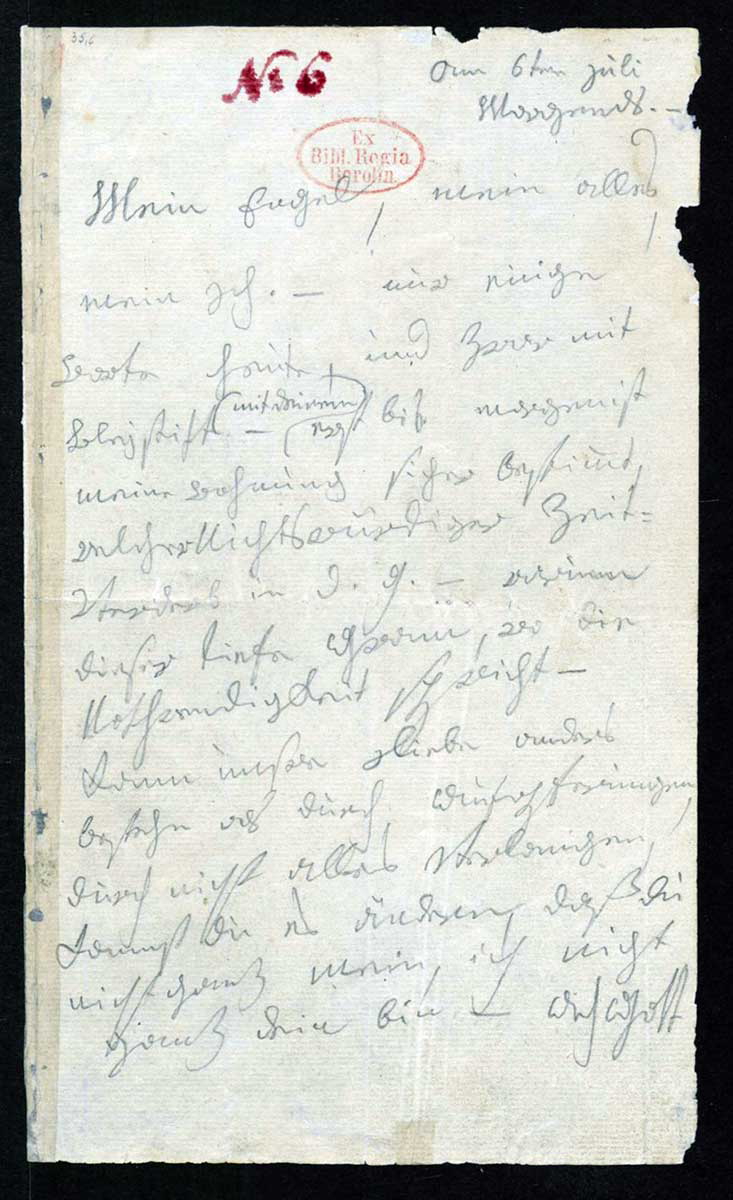 35,6
No 6
am 6ten Juli
Morgends. –
Ex
Bibl. Regia
Berolin.
Mein Engel, mein alles,
mein Ich. – nur einige
Worte heute, und zwar mit
Bleystift – (mit deinem)
erst bis morgen ist
meine Wohnung sicher bestimmt,
welcher Nichtswürdiger Zeit=
Verderb in d. g. – warum
dieser tiefe Gram, wo die
Nothwendigkeit spricht –
Kann unsre Liebe anders
bestehn als durch Aufopferungen,
durch nicht alles verlangen,
kannst du es ändern, daß du
nicht ganz mein, ich nicht
ganz dein bin – Ach Gott